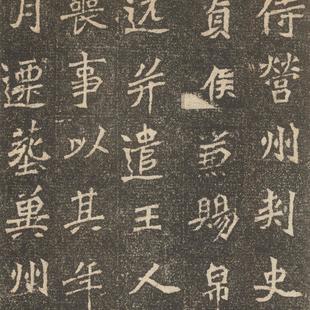 侍營州刾史
貞侯兼賜帛
并遣王人
喪事以其年
月遷葬冀州